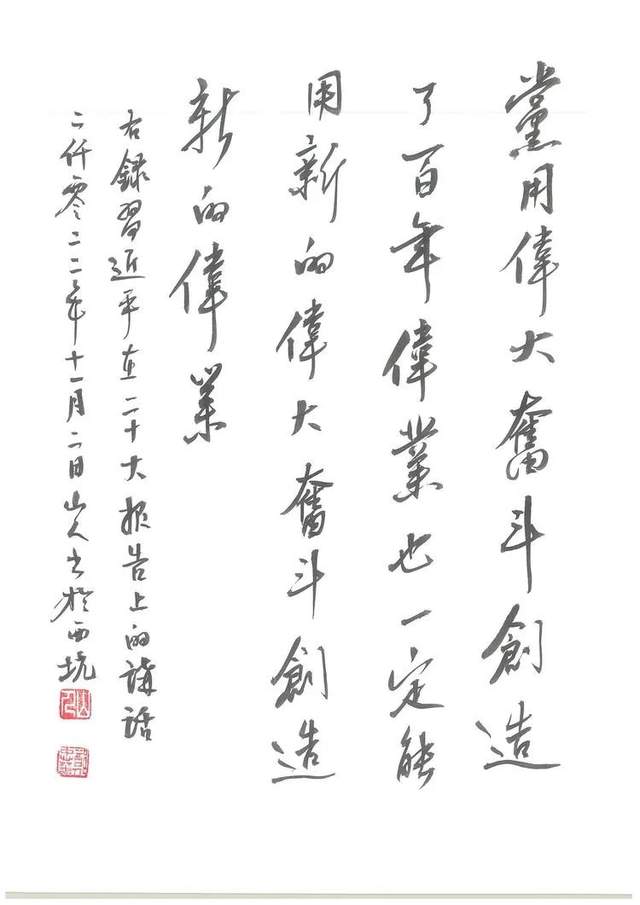 黨用偉大奮斗創造
了百年偉業也一定能
用新的偉大奮斗創造
新的偉業
右録習近平在二十大报告上的講話
二仟零二二年十一月二日山人书於西坑